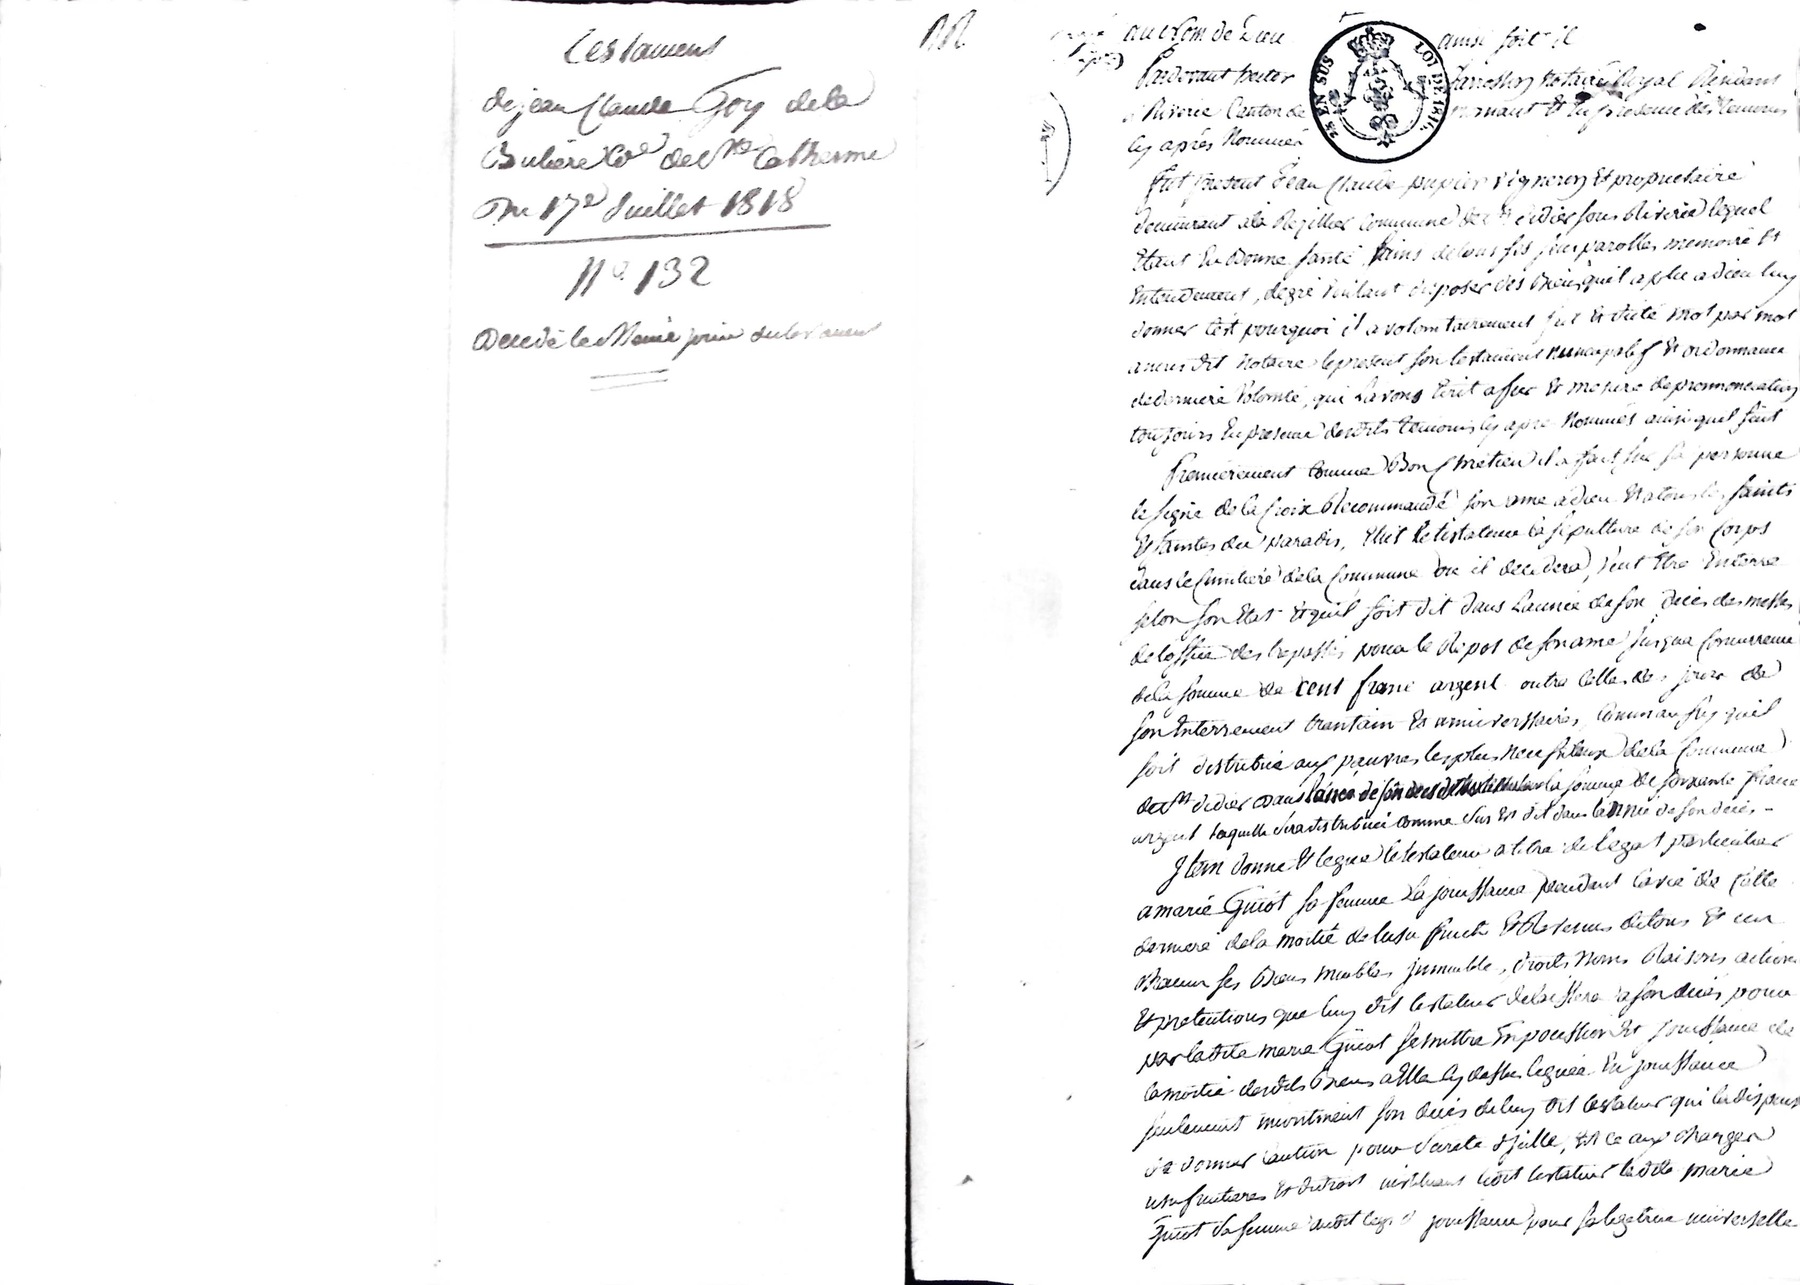 Testament
de jean Claude Goy de la
Bulière Cne de Ste Catherine
Du 17e Juillet 1818
No. 132
Décédé le Même jour du testament
au Nom de Dieu ainsi soit il
Pardevant notaire Royal
Riverie Canton de Mornant et En presence des temoins
cy après Nommés
fut present Jean Claude papier vigneron Et propriettaire
demeurant à la Commune de St didier sous Riverie lequel
Etant En Bonne santé, sains de tous ses sens parolles memoire Et
Entendement, de gré voulant disposer des Biens qu'il a plu a dieu luy
donner C'est pourquoi il a volontairement fait Et dicté mot par mot
a nous dit Notaire le present son testament nuncupatif Et ordonnance
de derniere volonté, qui L'avons Ecrit a fur Et mesure de prononciation
toujours En presence desdits temoins cy apres Nommés ainsi quil suit
Premierement Comme Bon Chrétien il a fait sur sa personne
le signe de la Croix Recommandé son ame a dieu Et a tous les saints
Et saintes du paradis, Elit le testateur la sepulture de son Corps
dans le Cimitiere de la Commune ou il decedera, veut Etre Enterré
selon son Etat Et quil soit dit dans L'année de son décès des messes
de l'office des trepassés pour le Repos de son ame jusqua Concurrence
de la somme de cent franc argent outre Celles des jours de
son Enterrement trantain Et anniverssaires, Comme aussy quil
soit distribué aux pauvres les plus necessiteux de la Commune
de St didier dans la somme de soixante francs
argent laquelle sera distribuée comme dus Est dit dans lannée de son déces -
Item donne Et legue le testateur a titre de legat particulier
a marie Guiot sa femme La jouissance pendant la vie de Cette
derniere de la moitié de lusu fruits Et Revenus de tous Et un
Chacun ses Biens meubles jmmeuble, droits Noms Raisons actions
Et pretentions que luy dit testateur delaissera a son décés pour
par ladite marie Guiot se mettre En possession Et jouissance de
la moitié desdits Biens a Elle cy dessus leguée En jouissance
seulement incontinent son décès de luy dit testateur qui la dispense
de donner Caution pour sureté dicelle, Et ce aux charges
usufruitieres Et de droit instituant ledit testateur ladite marie
Guiot sa femme audit legs d jouissance pour sa legataire universelle